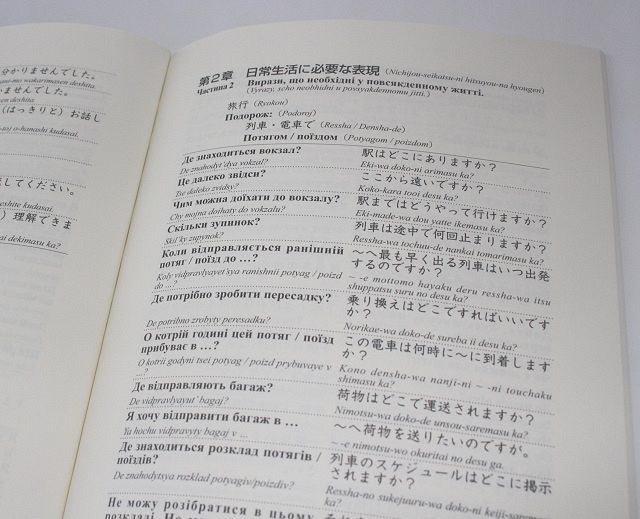 分かりませんでした。
wakarimasen deshita.
いませんでした。
deshita.
(はっきりと) お話し
o-hanashi kudasai.
してください。
kudasai.
) 理解できま
dekimasu ka?
第2章 日常生活に必要な表現 (Nichijou-seikatsu-ni hitsuyou-na hyougen)
Частина 2 Вирази, що необхідні у повсякденному житті.
(Vyrazy, scho neobhidni u povsyakdennomu jitti.)
旅行 (Ryokou)
Подорож: (Podoroj)
列車・電車で (Ressha / Densha-de)
Потягом / поїздом (Potyagom / poizdom)
Де знаходиться вокзал?
De znahodyt'dya vokzal?
駅はどこにありますか？
Eki-wa doko-ni arimasu ka?
Це далеко звідси?
Tse daleko zvidsy?
ここから遠いですか？
Koko-kara tooi desu ka?
Чим можна доїхати до вокзалу?
Chy mojna doihaty do vokzalu?
駅まではどうやって行けますか？
Eki-made-wa dou yatte ikemasu ka?
Скільки зупинок?
Skil'ky zupynok?
列車は途中で何回止まりますか？
Ressha-wa tochuu-de nankai tomarimasu ka?
Коли відправляється ранішній
потяг / поїзд до …?
Koly vidpravlyayet'sya ranishnii potyag / poizd
do …?
～へ最も早く出る列車はいつ出発
するのですか？
~ -e mottomo hayaku deru ressha-wa itsu
shuppatsu suru no desu ka?
Де потрібно зробити пересадку?
De potribno zrobyty peresadku?
乗り換えはどこですればいいです
か？
Norikae-wa doko-de sureba ii desu ka?
О котрій годині цей потяг / поїзд
прибуває в …?
O kotrii godyni tsei potyag / poizd prybuvaye v
…?
この電車は何時に～に到着します
か？
Kono densha-wa nanji-ni ~ -ni touchaku
shimasu ka?
Де відправляють багаж?
De vidpravlyayut' bagaj?
荷物はどこで運送されますか？
Nimotsu-wa doko-de unsou-saremasu ka?
Я хочу відправити багаж в …
Ya hochu vidpravyty bagaj v …
～へ荷物を送りたいのですが。
~-e nimotsu-wo okuritai no desu ga.
Де знаходиться розклад потягів /
поїздів?
De znahodytsya rozklad potyagiv/poizdiv?
列車のスケジュールはどこに掲示
されますか？
Ressha-no sukejuuru-wa doko-ni keiji-sare-
masu ka?
Не можу розібратися в цьому